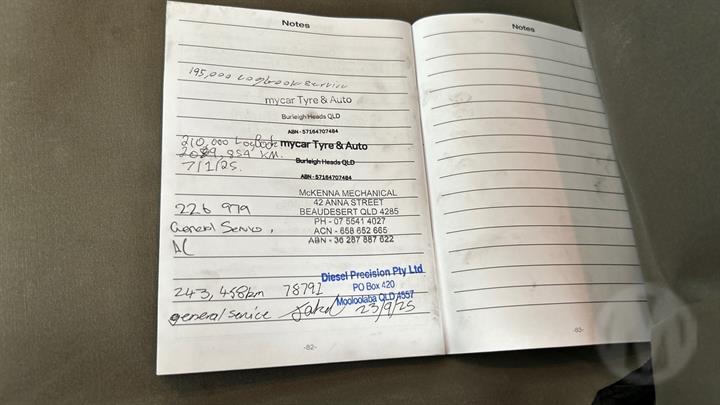 Notes
195,000 Logbook Service
mycar Tyre & Auto
Burleigh Heads QLD
ABN - 57164707484
210,000 Logbook mycar Tyre & Auto
859 KM.
Burleigh Heads QLD
7/1/25.
ABN - 57164707484
McKENNA MECHANICAL
42 ANNA STREET
226 979
BEAUDESERT QLD 4285
PH - 07 5541 4027
General Service,
ACN - 658 652 665
ABN - 36 287 887 622
Diesel Precision Pty Ltd
243, 458km 78791
PO Box 420
Mooloolaba QLD 4557
general service
23/9/25
-82-
Notes
-83-